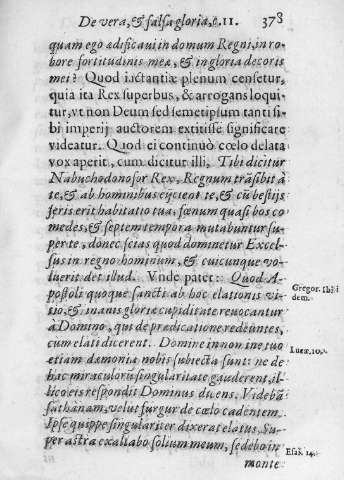 De vera, & falsa gloria, c. 11. 378
quam ego ædificaui in domum Regni, in ro-
bore fortitudinis meæ, & in gloria decoris
mei? Quod iactantiæ plenum censetur,
quia ita Rex superbus, & arrogans loqui
tur, vt non Deum sed semetipsum tanti si-
bi imperij auctorem extitisse significare
videatur. Quod ei continuò cœlo delata
vox aperit, cum dicitur illi, Tibi dicitur
Nabuchodonosor Rex, Regnum trãsibit à
te, & ab hominibus eijcient te, & cũ bestijs
feris erit habitatio tua, fœnum quasi bos co
medes, & septem tempora mutabuntur su-
per te, donec scias quod dominetur Excel-
sus in regno hominum, & cuicunque vo-
luerit det illud. Vnde patet: Quod A-
postoli quoque sancti ab hoc elationis vi-
tio, & inanis gloriæ cupiditate reuocantur
à Domino, qui de prædicatione redeuntes,
cùm elati dicerent. Domine in nomine tuo
etiam dæmonia nobis subiecta sunt: ne de
hac miraculorũ singularitate gauderent, il-
lico eis respondit Dominus dicens. Videbã
sathanam, velut furgur de cœlo cadentem.
Ipse quippe singulariter dixerat elatus. Su-
per astra exaltabo solium meum, sedebo in
monte
Gregor. Ibi
dem.
Lucæ. 10.
Esa. 14.